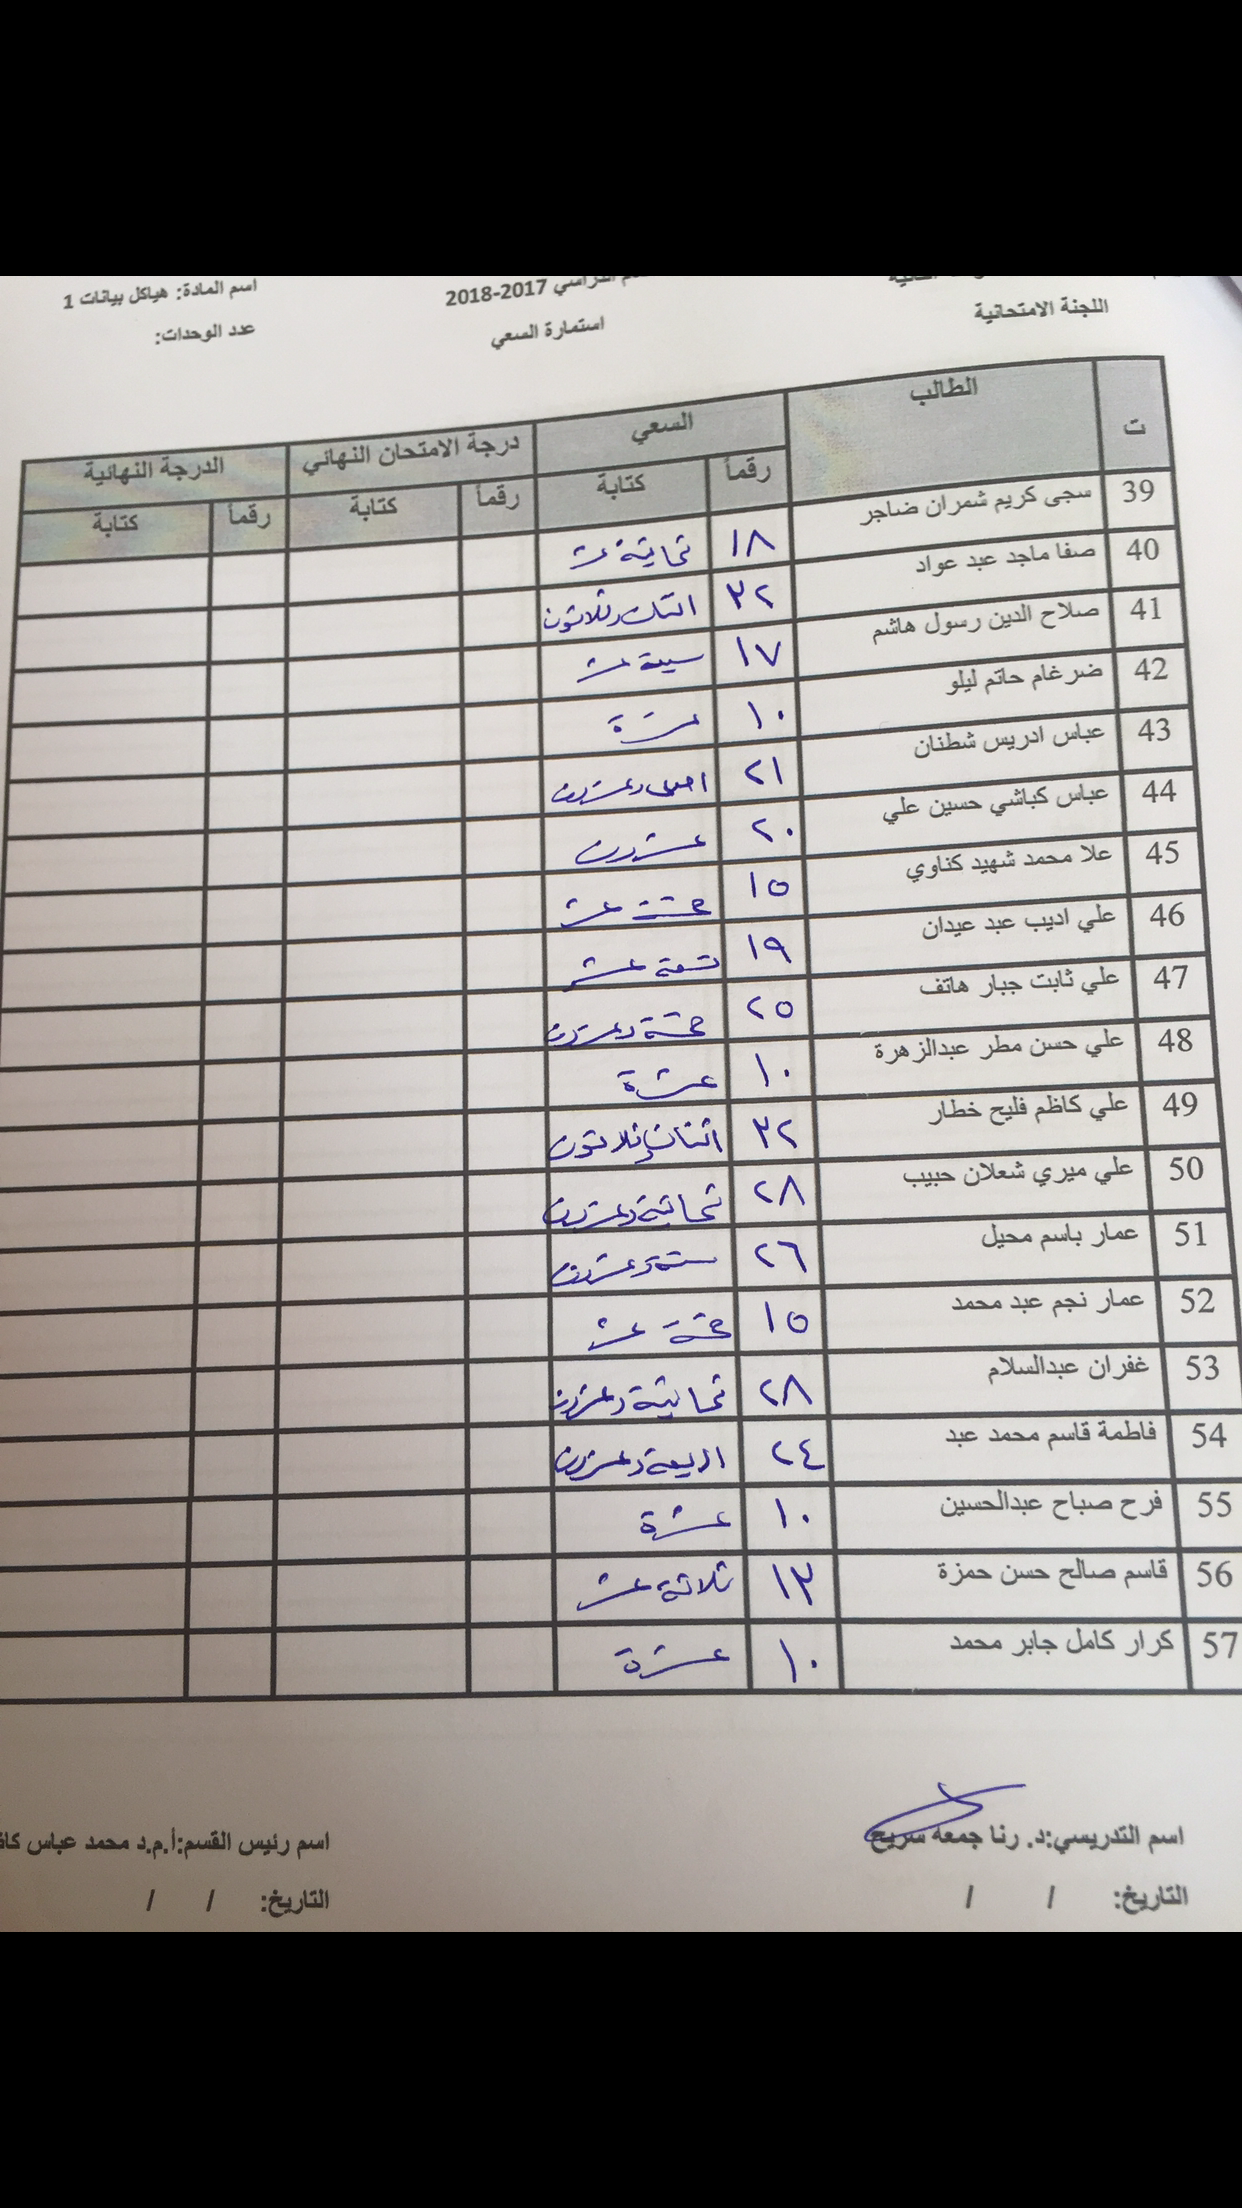 اللجنة الامتحانية
2018-2017
استمارة السعي
اسم المادة: هياكل بيانات 1
عدد الوحدات:
ت الطالب السعي درجة الامتحان النهائي الدرجة النهائية
رقماً كتابة رقماً كتابة رقماً كتابة
39 سجى كريم شمران ضاجر ١٨ ثمانية عشر
40 صفا ماجد عبد عواد ٣٢ وثلاثون
41 صلاح الدين رسول هاشم ١٧ سبعة عشر
42 ضرغام حاتم ليلو ١٠ عشرة
43 عباس ادريس شطنان ٢١ احدى وعشرون
44 عباس كباشي حسين علي ٢٠ عشرون
45 علا محمد شهيد كناوي ١٥ خمسة عشر
46 علي اديب عبد عيدان ١٩ تسعة عشر
47 علي ثابت جبار هاتف ٢٥ خمسة وعشرون
48 علي حسن مطر عبدالزهرة ١٠ عشرة
49 علي كاظم فليح خطار ٣٢ اثنان وثلاثون
50 علي ميري شعلان حبيب ٢٨ ثمانية وعشرون
51 عمار باسم محيل ٢٦ ستة وعشرون
52 عمار نجم عبد محمد ١٥ خمسة عشر
53 غفران عبدالسلام ٢٨ ثمانية وعشرون
54 فاطمة قاسم محمد عبد ٢٤ اربعة وعشرون
55 فرح صباح عبدالحسين ١٠ عشرة
56 قاسم صالح حسن حمزة ١٣ ثلاثة عشر
57 كرار كامل جابر محمد ١٠ عشرة
اسم التدريسي:د. رنا جمعه سريح
التاريخ: / /
اسم رئيس القسم:أ.م.د محمد عباس
التاريخ: / /